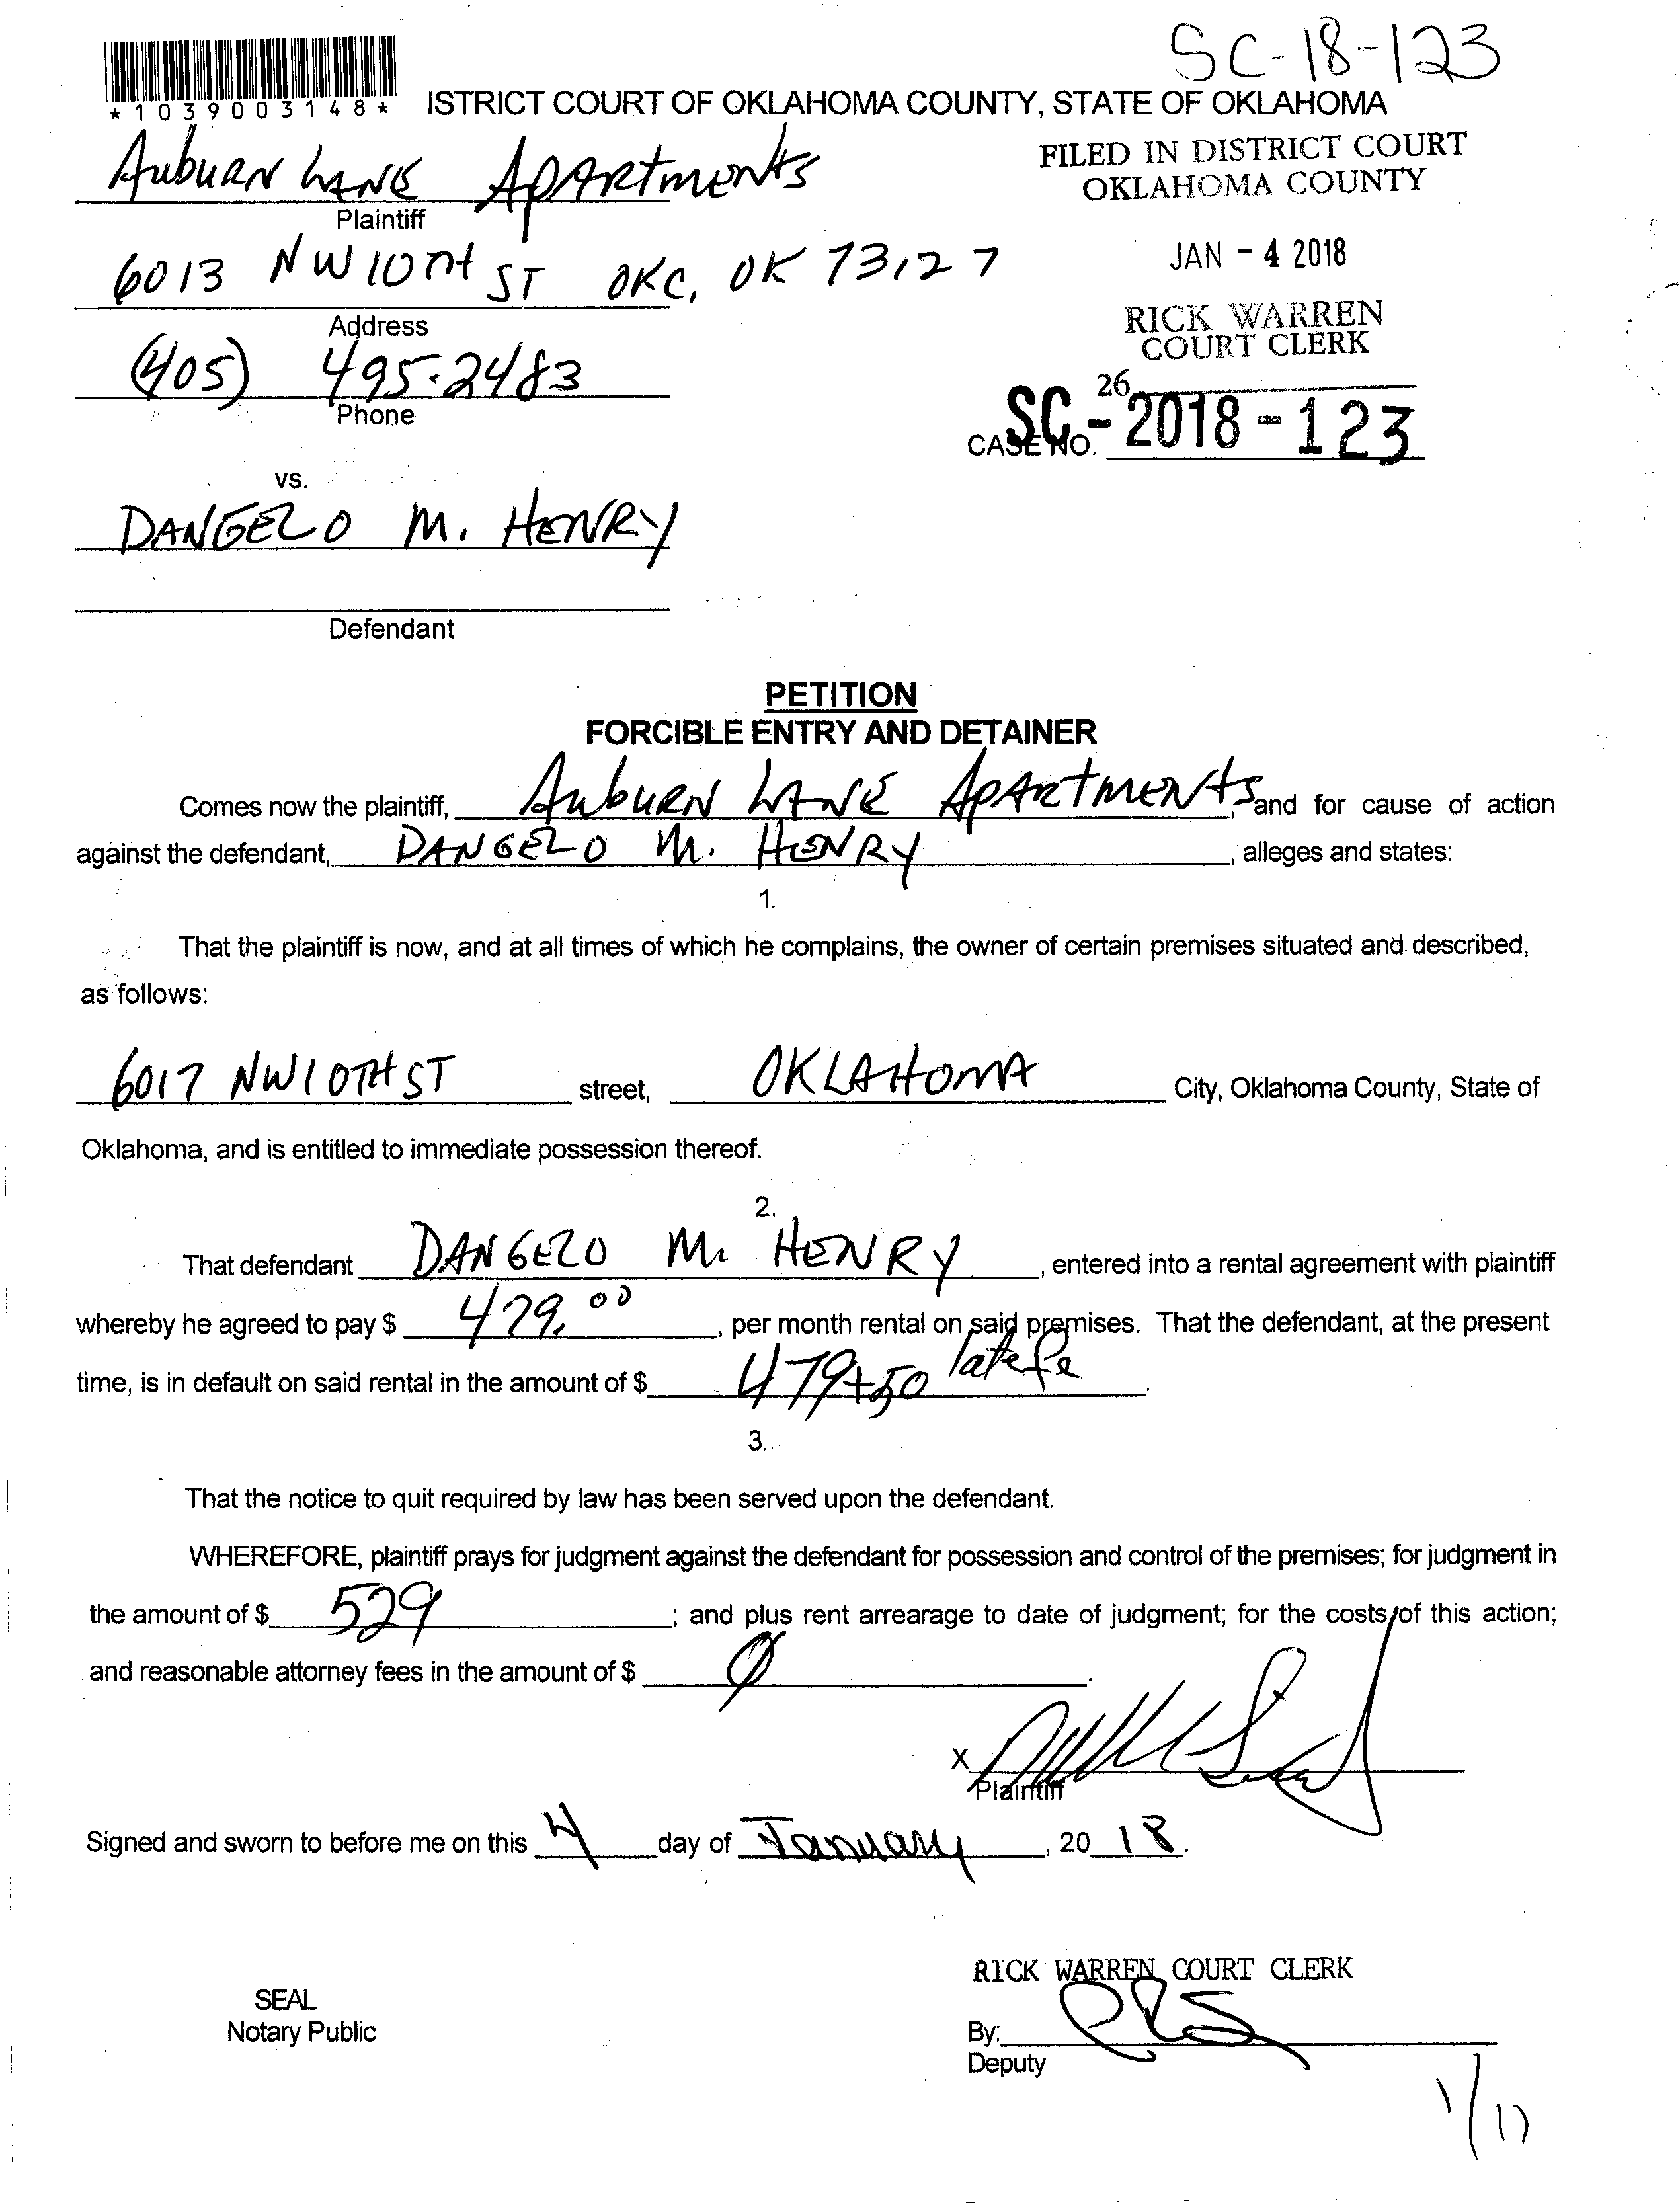 SC-18-123
*1039003148*
ISTRICT COURT OF OKLAHOMA COUNTY, STATE OF OKLAHOMA
Auburn Lane Apartments
Plaintiff
FILED IN DISTRICT COURT
OKLAHOMA COUNTY
6013 NW 10TH ST OKC, OK 73127
Address
JAN - 4 2018
(405) 495-2483
Phone
RICK WARREN
COURT CLERK
26
CASE NO. SC-2018-123
vs.
DANGELO M. HENRY
Defendant
PETITION
FORCIBLE ENTRY AND DETAINER
Comes now the plaintiff, Auburn Lane Apartments, and for cause of action
against the defendant, DANGELO M. HENRY, alleges and states:
1.
That the plaintiff is now, and at all times of which he complains, the owner of certain premises situated and described,
as follows:
6017 NW 10TH ST street, OKLAHOMA City, Oklahoma County, State of
Oklahoma, and is entitled to immediate possession thereof.
2.
That defendant DANGELO M. HENRY, entered into a rental agreement with plaintiff
whereby he agreed to pay $ 479.00, per month rental on said premises. That the defendant, at the present
time, is in default on said rental in the amount of $ 479+50 late fe.
3.
That the notice to quit required by law has been served upon the defendant.
WHEREFORE, plaintiff prays for judgment against the defendant for possession and control of the premises; for judgment in
the amount of $ 529; and plus rent arrearage to date of judgment; for the costs of this action;
and reasonable attorney fees in the amount of $ 0.
X
Plaintiff
Signed and sworn to before me on this 4 day of January, 20 18.
RICK WARREN COURT CLERK
SEAL
Notary Public
By:
Deputy
1/17